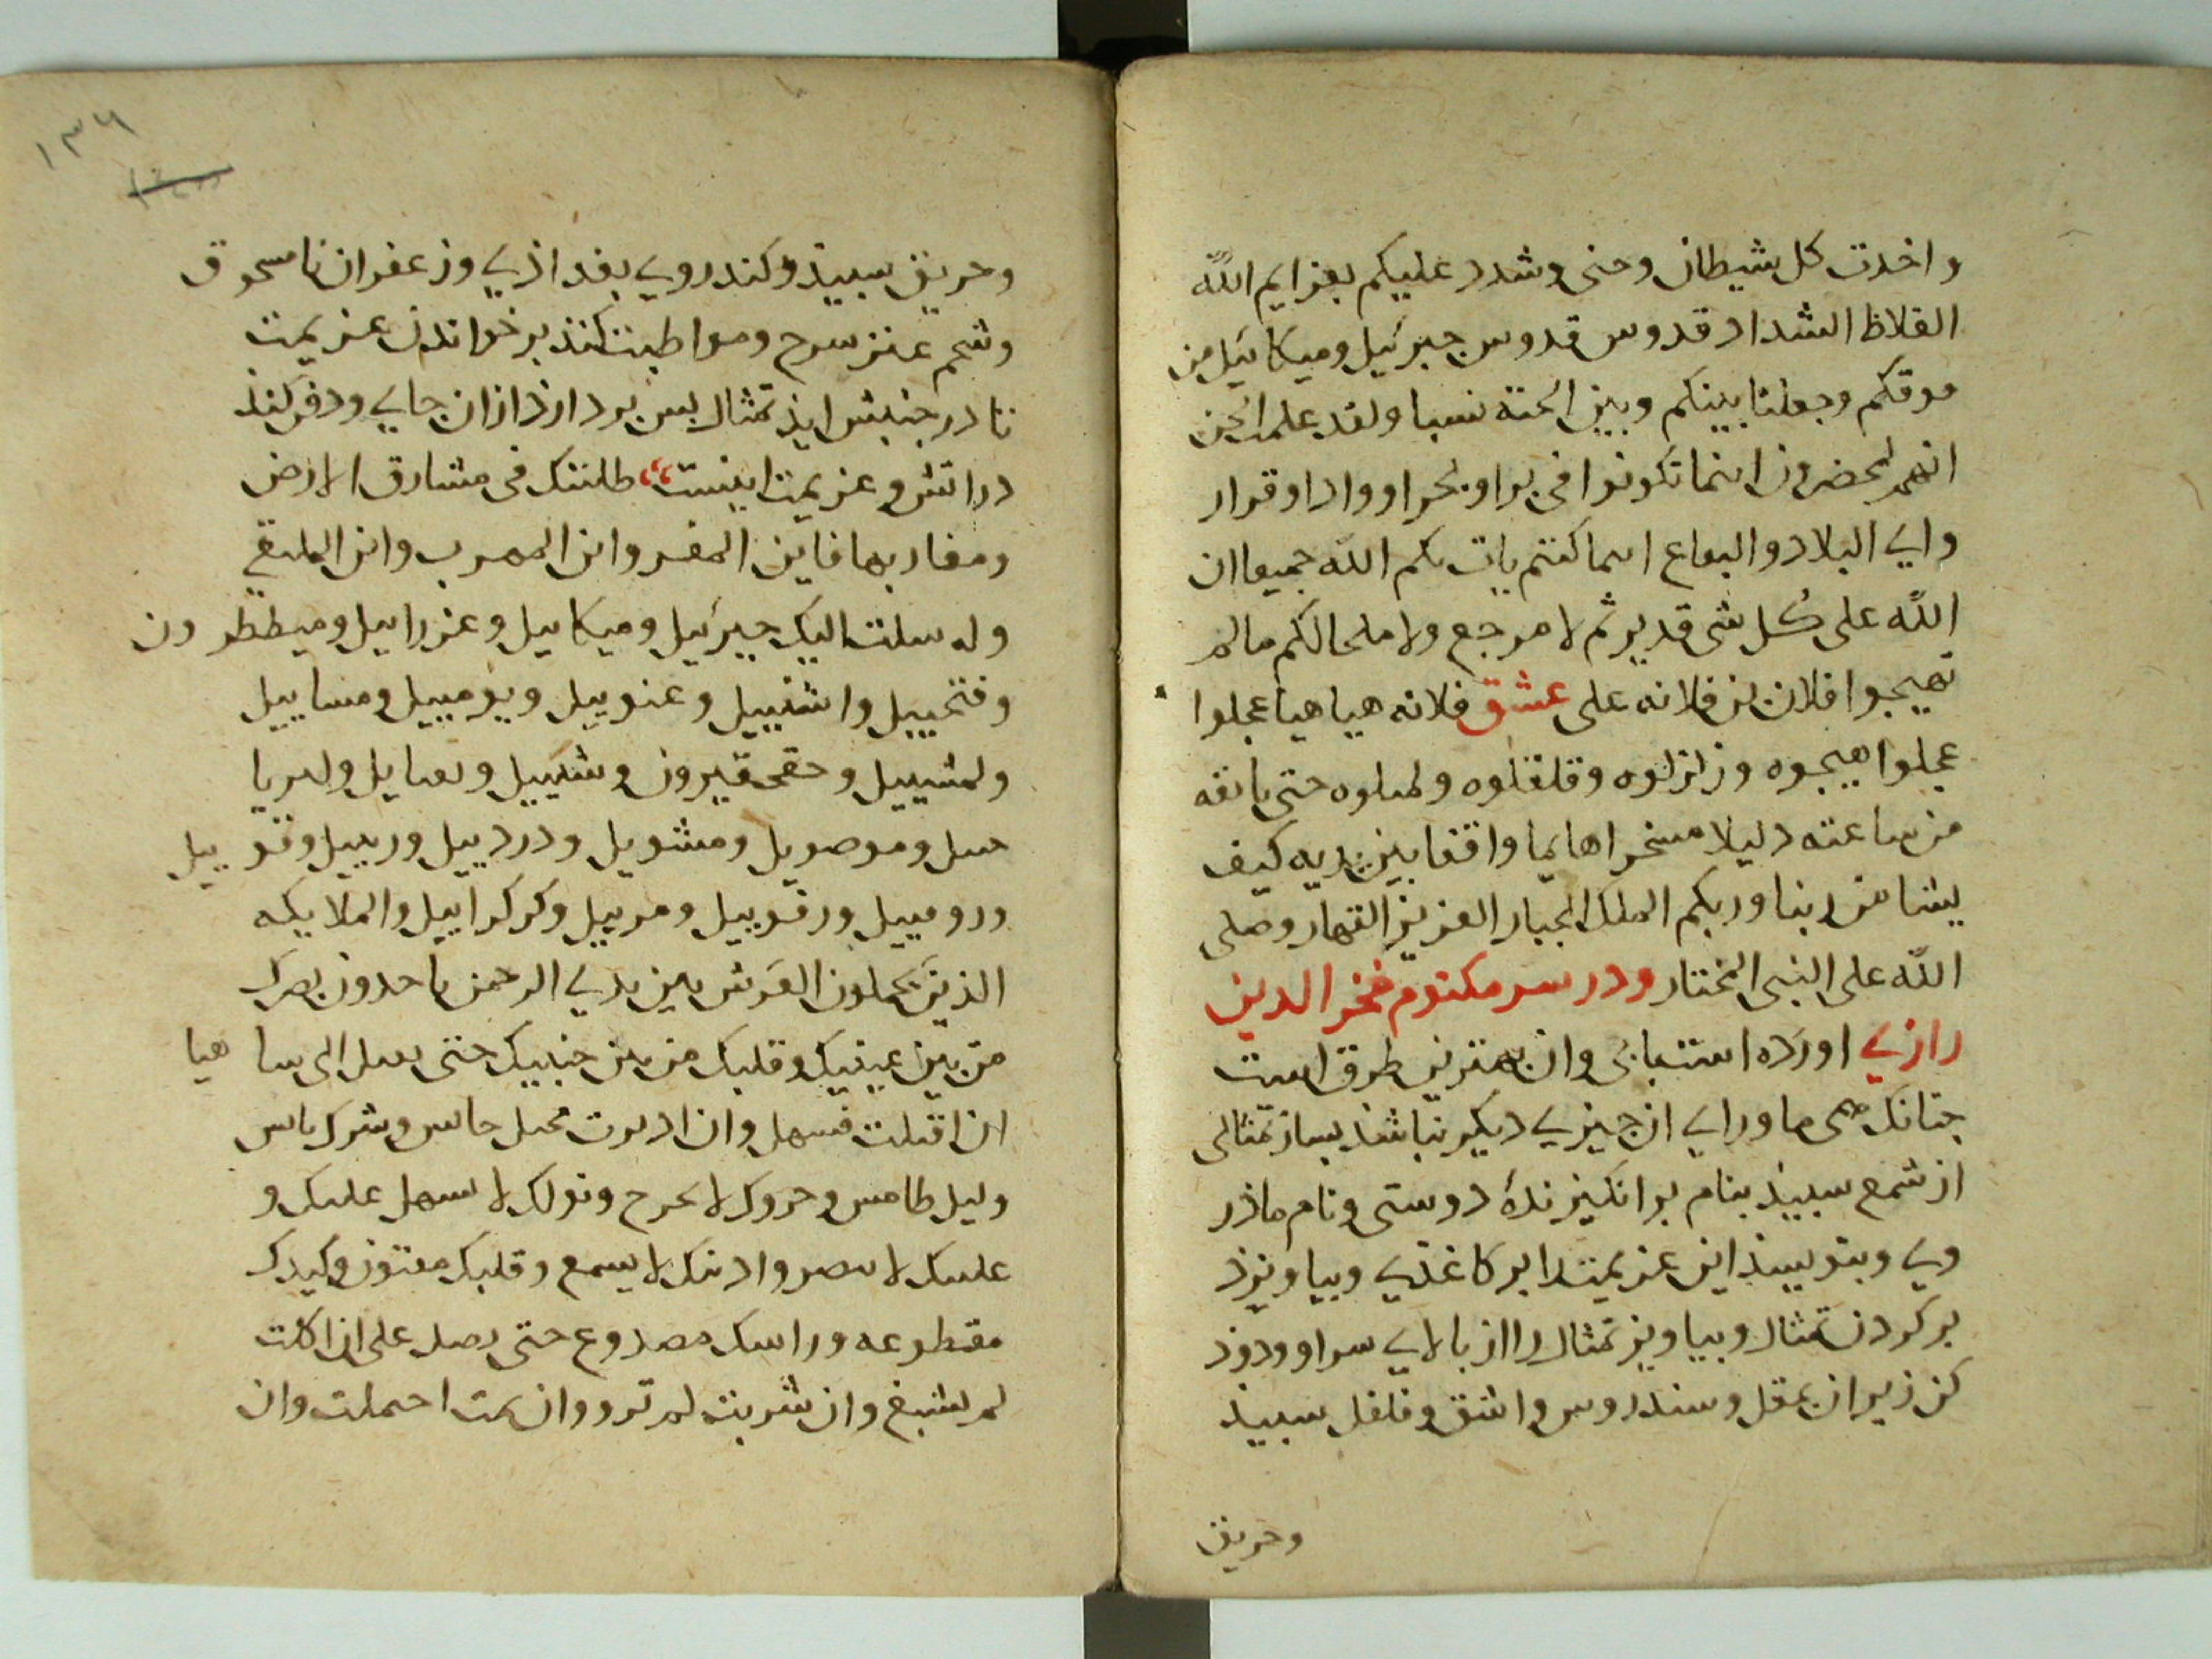 واخذت كل شيطان وجنى وشدد عليكم بعزايم الله
الغلاظ الشداد قدوس قدوس جبرئيل وميكائيل من
فوقكم وجعلنا بينكم وبين الجنة نسبا ولقد علمت الجن
انهم لمحضرون اينما تكونوا فى براو بحر او واد او قرار
واي البلاد والبقاع اينما كنتم يات بكم الله جميعا ان
الله على كل شى قدير ثم لا مرجع ولا ملجا لكم مالم
تهيجوا فلان بن فلانه على عشق فلانه هيا هيا عجلوا
عجلوا هيجوه وزلزلوه وقلقلوه حتى
من ساعته ذليلا مسخرا هايما واقفا بين يديه كيف
يشا من ربنا وربكم الملك الجبار العزيز القهار وصلى
الله على النبى المختار ودر سر مكتوم فخر الدين
رازي اورده است وان بهترين طرق است
چنانك ماوراي ان چيزي ديكر نباشذ بساز تمثالى
از شمع سبيذ بنام برانكيزندۀ دوستى ونام ماذر
وي وبنويسذ اين عزيمت را بر كاغذي وبياويزد
بر كردن تمثال وبياويز تمثال را از بالاي سر او ودوذ
كن زير ان بمقل وسندروس واشق وفلفل سبيذ
وحريق
١٣٦
وحريق سبيذ وكندر وي بغداذي وزعفران نامسحوق
وشحم عنز سرح ومواظبت كنذ بر خواندن عزيمت
تا در جنبش ايذ تمثال بس بردارذ از ان جاي ودفن كنذ
در اتش وعزيمت اينست طلبتك فى مشارق الارض
ومغاربها فاين المفر واين المهرب واين الملتقي
ارسلت اليك جبرئيل وميكاييل وعزراييل وميططرون
وفتحييل واشفييل وعنوييل ويوميييل ومساييل
ولمشييل وقيرون وشكييل
وموصويل ومشويل ودردييل وربييل
ورومييل ورقوييل ومرييل وكركراييل والملايكه
الذين يحملون العرش بين يدي الرحمن ياخذون بصرك
من بين عينيك وقلبك من بين جنبيك حتى الى هيا
ان اقبلت فسهل وان ادبرت
وليل طامس وحروك لا ونومك لا سهل عليك و
عليك لا تبصر واذنك لا يسمع وقلبك مفتون وكيدك
مقطوعه وراسك مصدوع حتى ان اكلت
لم تشبع وان شربت لم ترو وان احملت وان